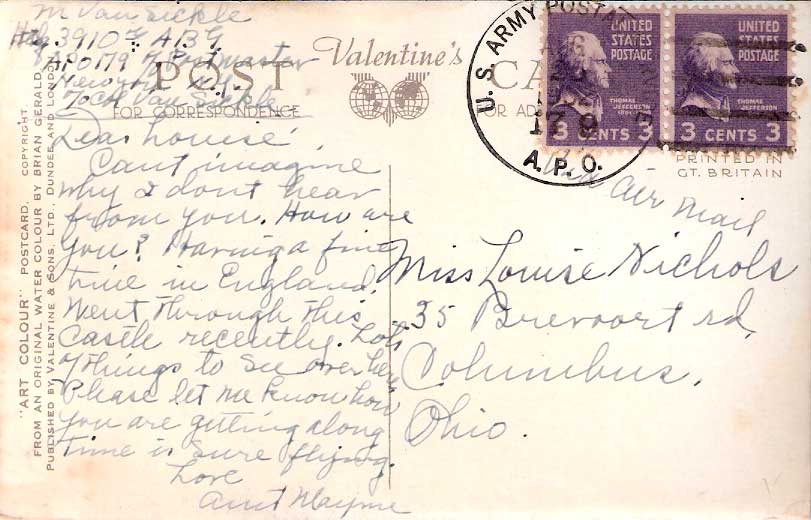 M Van Sickle
Hq 3910 ABG
APO 179 % Postmaster
New York N.Y.
Van Sickle
POST Valentine's CA
FOR CORRESPONDENCE FOR AD
Dear Louise,
Can't imagine
why I dont hear
from you. How are
you? Having a fine
time in England.
Went through this
Castle recently. Lots
of things to see over here
Please let me know how
you are getting along
time is sure flying.
Love
Aunt Mayme
"ART COLOUR" POSTCARD. COPYRIGHT.
FROM AN ORIGINAL WATER COLOUR BY BRIAN GERALD.
PUBLISHED BY VALENTINE & SONS, LTD., DUNDEE AND LONDON
U.S. ARMY POSTA
AUG
17
9
A.P.O.
UNITED
STATES
POSTAGE
THOMAS
JEFFERSON
3 CENTS 3
UNITED
STATES
POSTAGE
THOMAS
JEFFERSON
3 CENTS 3
PRINTED IN
GT. BRITAIN
Air Mail
Miss Louise Nichols
35 Brevoort rd,
Columbus,
Ohio.